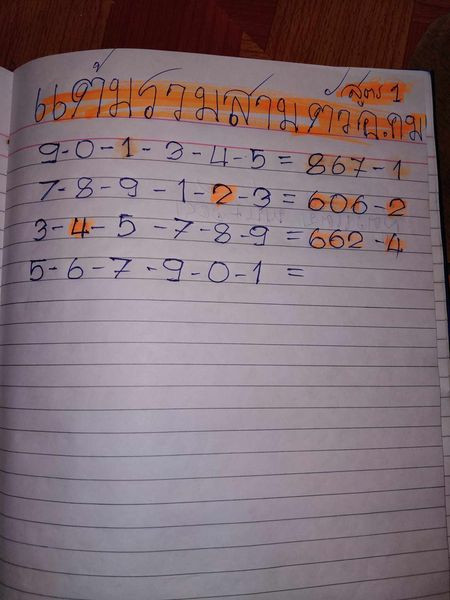 สูตร 1
แต้มรวมสามตัว ฉ.กม
9-0-1-3-4-5 = 867-1
7-8-9-1-2-3 = 606-2
3-4-5-7-8-9 = 662-4
5-6-7-9-0-1 =